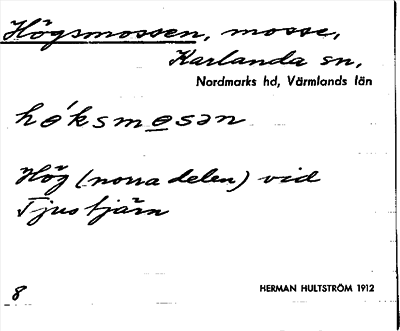 Högsmossen, mosse,
Karlanda sn,
Nordmarks hd, Värmlands län
hǿksmosən
Hög (norra delen) vid
Tjustjärn
8
HERMAN HULTSTRÖM 1912